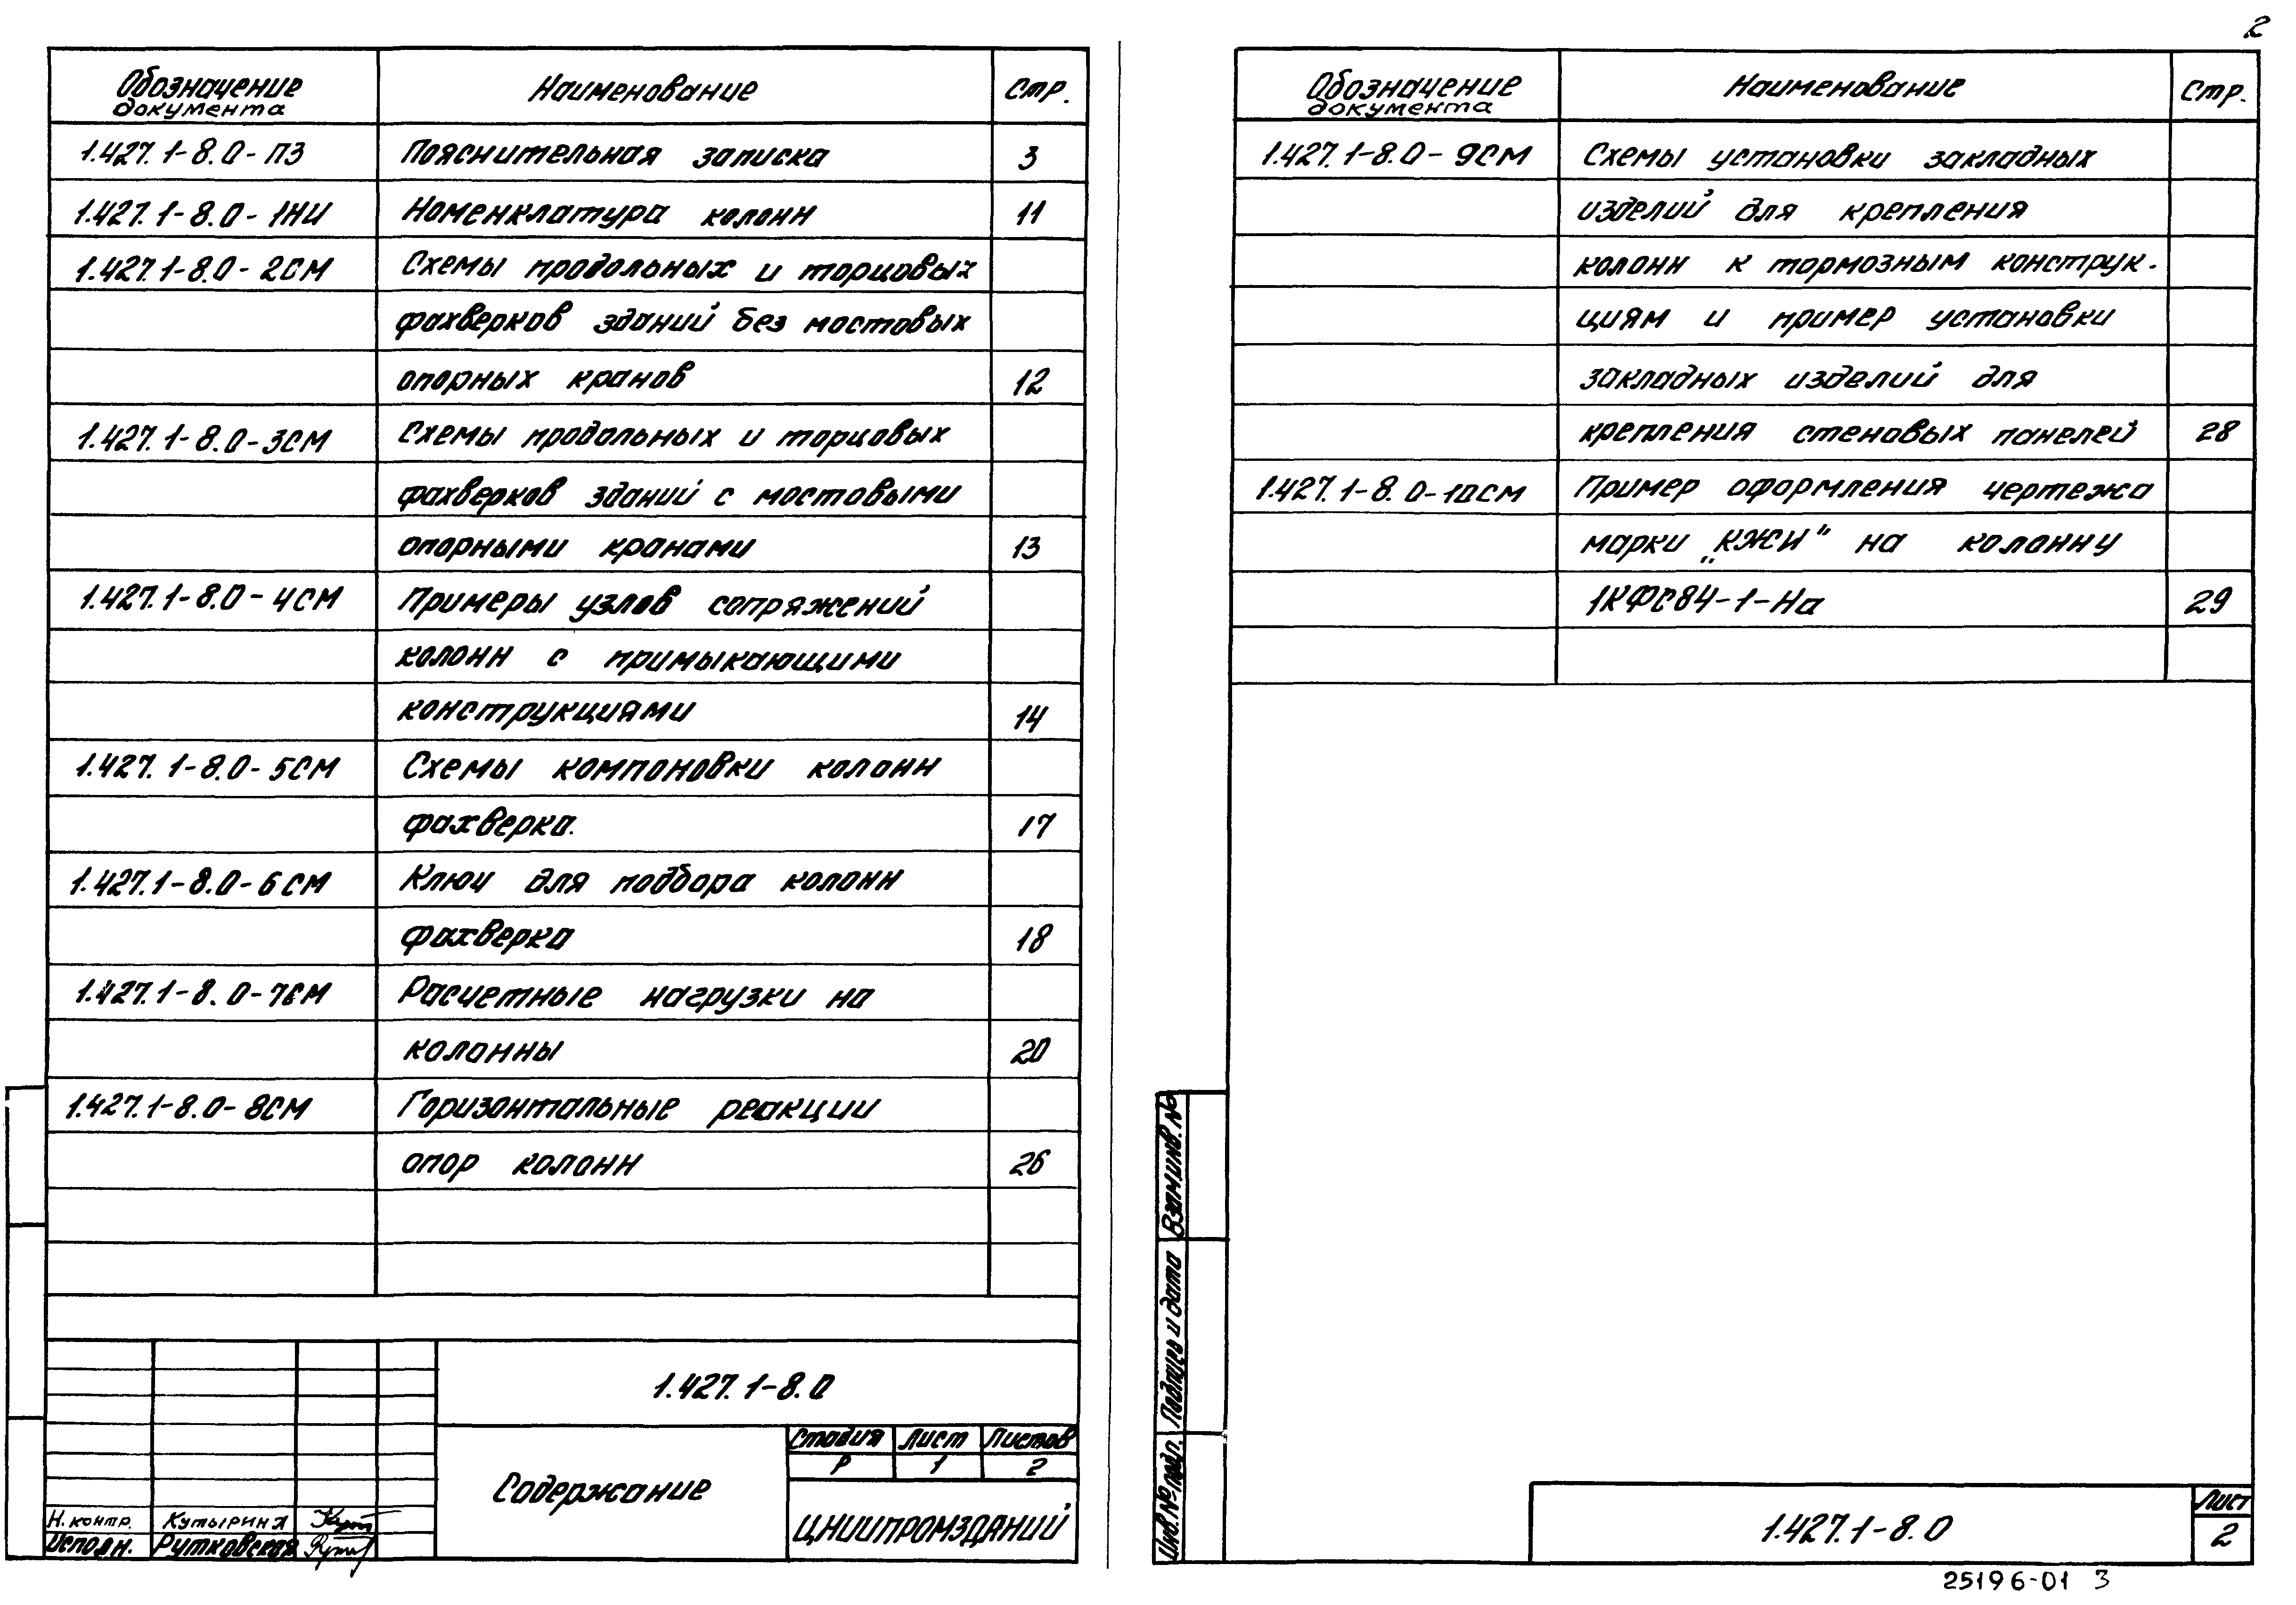 2
Обозначение документа Наименование Стр.
1.427.1-8.0-ПЗ Пояснительная записка 3
1.427.1-8.0-1НИ Номенклатура колонн 11
1.427.1-8.0-2СМ Схемы продольных и торцовых
фахверков зданий без мостовых
опорных кранов 12
1.427.1-8.0-3СМ Схемы продольных и торцовых
фахверков зданий с мостовыми
опорными кранами 13
1.427.1-8.0-4СМ Примеры узлов сопряжений
колонн с примыкающими
конструкциями 14
1.427.1-8.0-5СМ Схемы компоновки колонн
фахверка. 17
1.427.1-8.0-6СМ Ключ для подбора колонн
фахверка 18
1.427.1-8.0-7СМ Расчетные нагрузки на
колонны 20
1.427.1-8.0-8СМ Горизонтальные реакции
опор колонн 26
1.427.1-8.0
Содержание
Стадия Лист Листов
Р 1 2
ЦНИИПРОМЗДАНИЙ
Н. контр. Кутырина
Исполн. Рутковская
Обозначение документа Наименование Стр.
1.427.1-8.0-9СМ Схемы установки закладных
изделий для крепления
колонн к тормозным конструк-
циям и пример установки
закладных изделий для
крепления стеновых панелей 28
1.427.1-8.0-10СМ Пример оформления чертежа
марки „КЖИ" на колонну
1КФС84-1-На 29
Взам.инв.№
Подпись и дата
Инв.№ подл.
1.427.1-8.0
Лист
2
25196-01 3